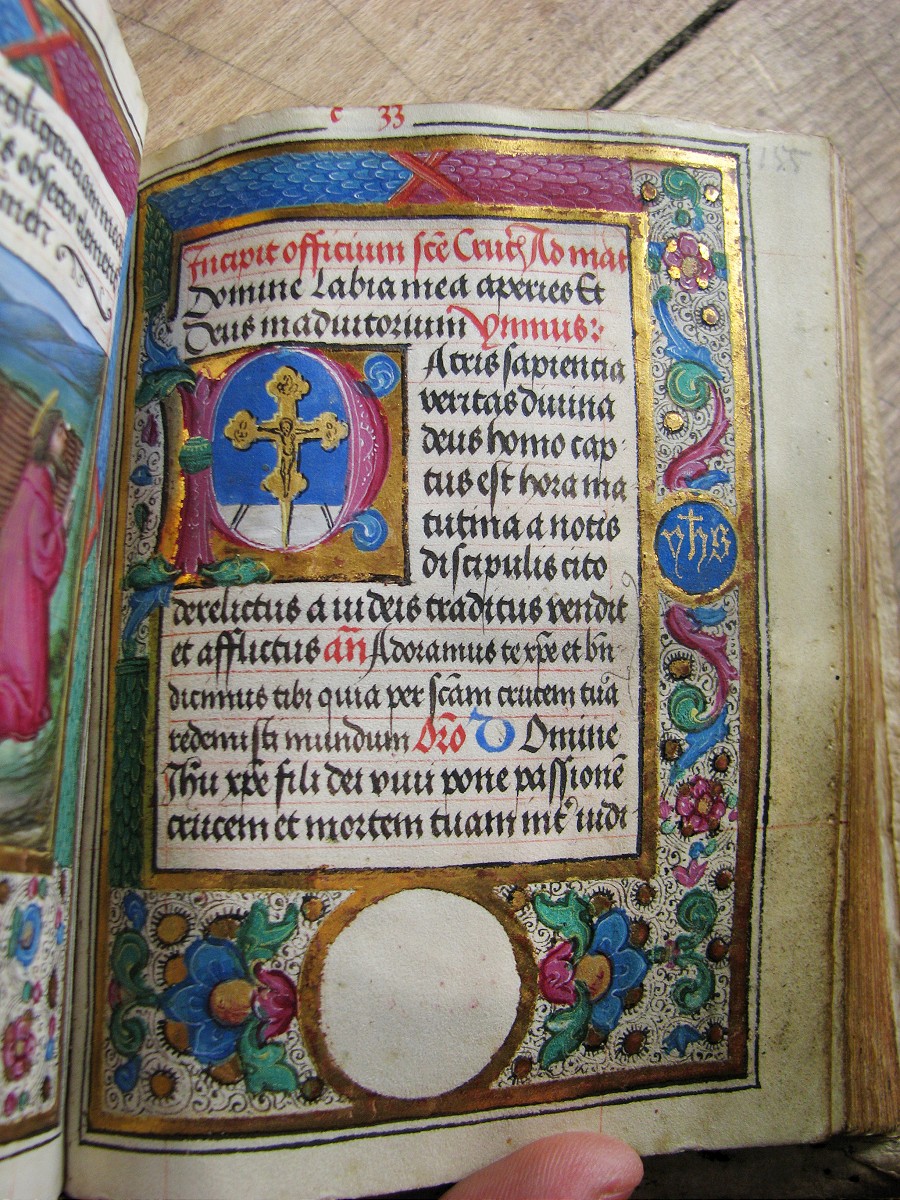 egligenciam mea
e obsecro domene
men
c 33
155
Incipit officium sc̄e Cruc̄ Ad mat
Domine Labia mea aperies Et
Deus in adiutorium Ymnus:
PAtris sapiencia
veritas diuina
deus homo cap-
tus est hora ma
tutina a notis
discipulis cito
derelictus a iudeis traditus vendit
et afflictus an̄ Adoramus te xp̄e et bn̄
dicimus tibi quia per sc̄am crucem tua
redemisti mundum Or̄o D Omine
Jh̄u xp̄e fili dei viui pone passionē
crucem et mortem tuam int' iudi
yhs